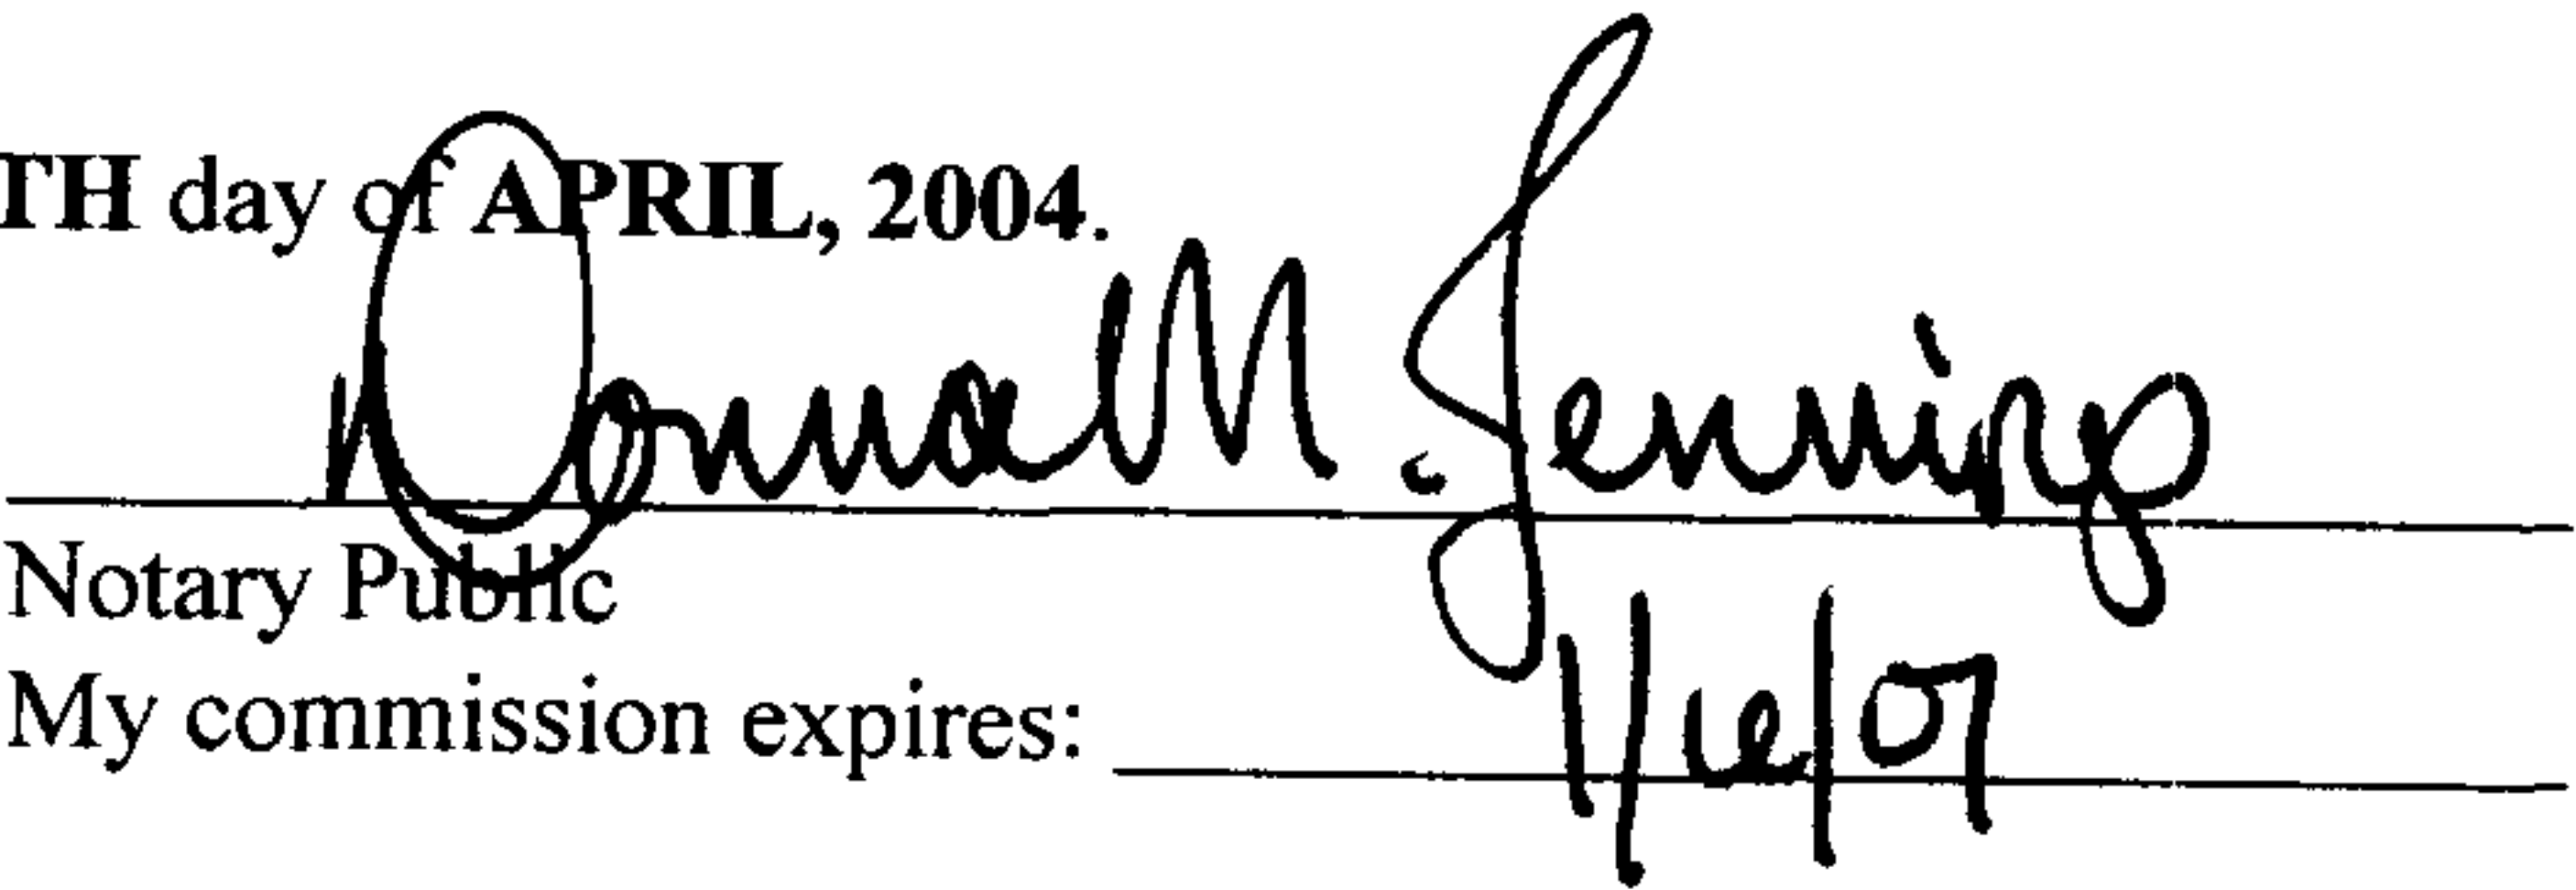 TH day of APRIL, 2004.
Donna M. Jennings
Notary Public
My commission expires: 1/16/07